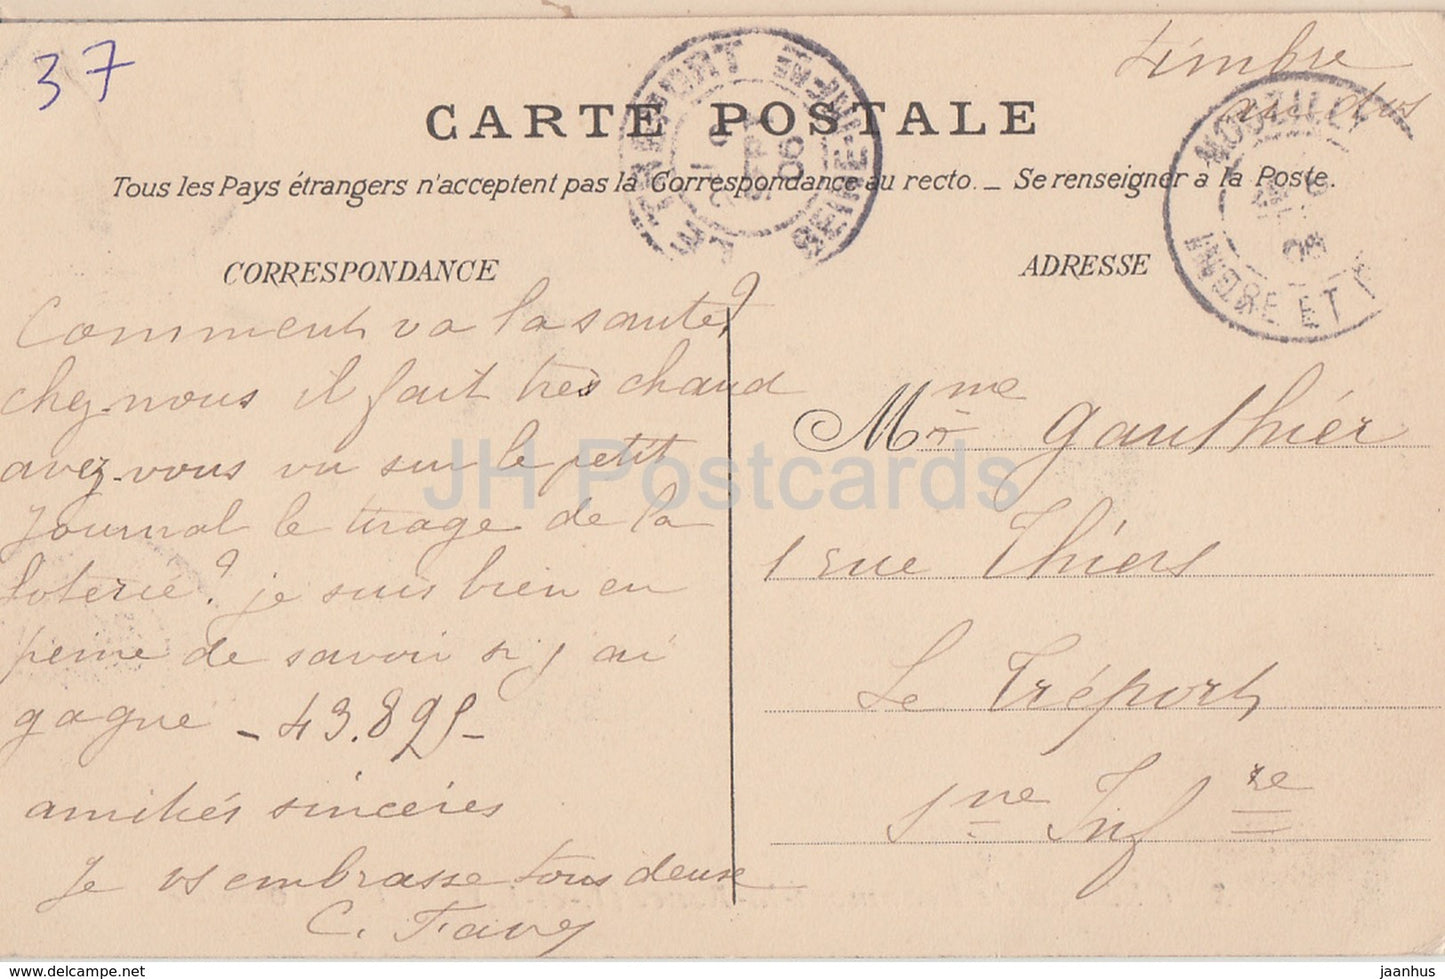 37
timbre
au dos
CARTE POSTALE
Tous les Pays étrangers n'acceptent pas la Correspondance au recto. _ Se renseigner a la Poste.
LE TREPORT SEINE-INF-RE
SEPT
06
NOUZILLY
INDRE ET
06
CORRESPONDANCE
Comment va la santé?
chez-nous il fait très chaud
avez-vous vu sur le petit
Journal le tirage de la
loterie? je suis bien en
peine de savoir si j ai
gagné - 43.895-
amitiés sincères
Je vs embrasse tous deux
C. Favry
ADRESSE
Mme Gauthier
1 rue Thiers
Le Tréport
Sne Infre
JH Postcards
jaanhus
www.delcampe.net